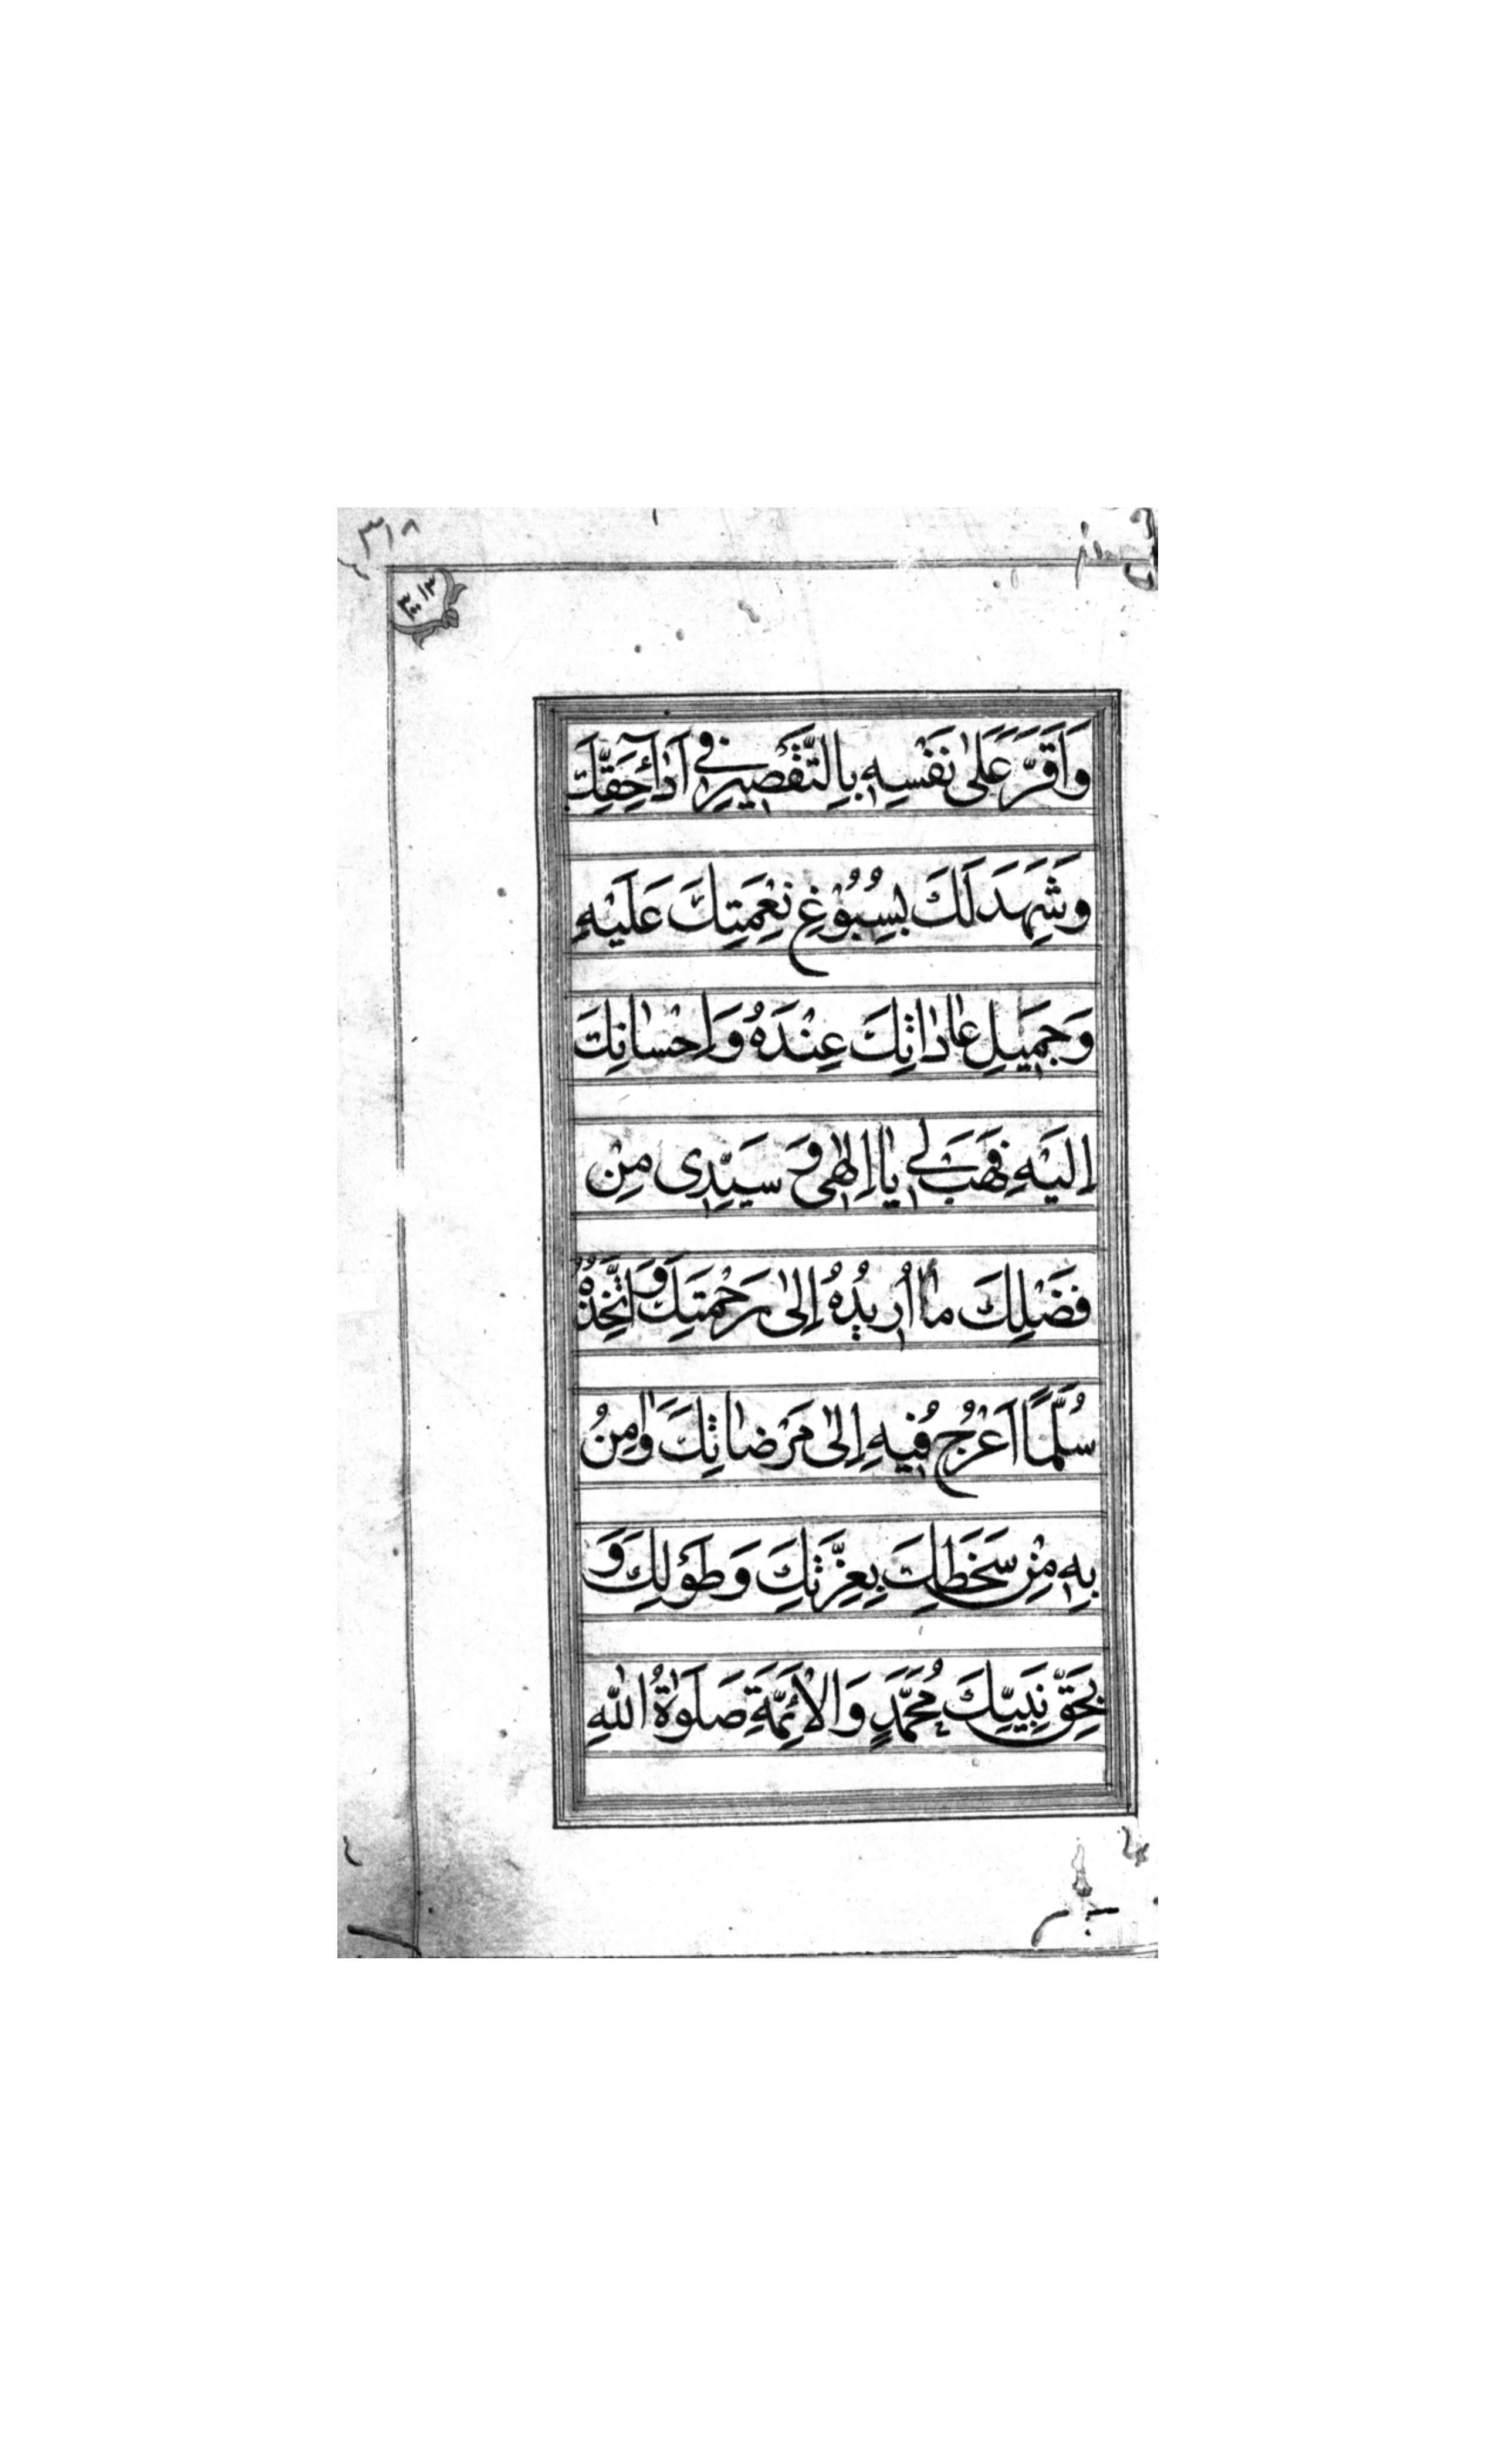 ٣١٨
وَاَقَرَّ عَلىٰ نَفْسِهٖ بِالتَّقْصٖيرِ فٖى اَدٰآءِ حَقِّكَ
وَشَهِدَ لَكَ بِسُبُوْغِ نِعْمَتِكَ عَلَيْهِ
وَجَمٖيلِ عٰادٰاتِكَ عِنْدَهُ وَاِحْسٰانِكَ
اِلَيْهِ فَهَبْ لٖى يٰا اِلٰهٖى وَ سَيِّدٖى مِنْ
فَضْلِكَ مٰا اُرٖيدُهُ اِلىٰ رَحْمَتِكَ وَاَتَّخِذُهُ
سُلَّمًا اَعْرُجُ فٖيهِ اِلىٰ مَرْضٰاتِكَ وَاٰمَنُ
بِهٖ مِنْ سَخَطِكَ بِعِزَّتِكَ وَطَوْلِكَ وَ
بِحَقِّ نَبِيِّكَ مُحَمَّدٍ وَالْاَئِمَّةِ صَلَوٰاةُ اللّٰهِ